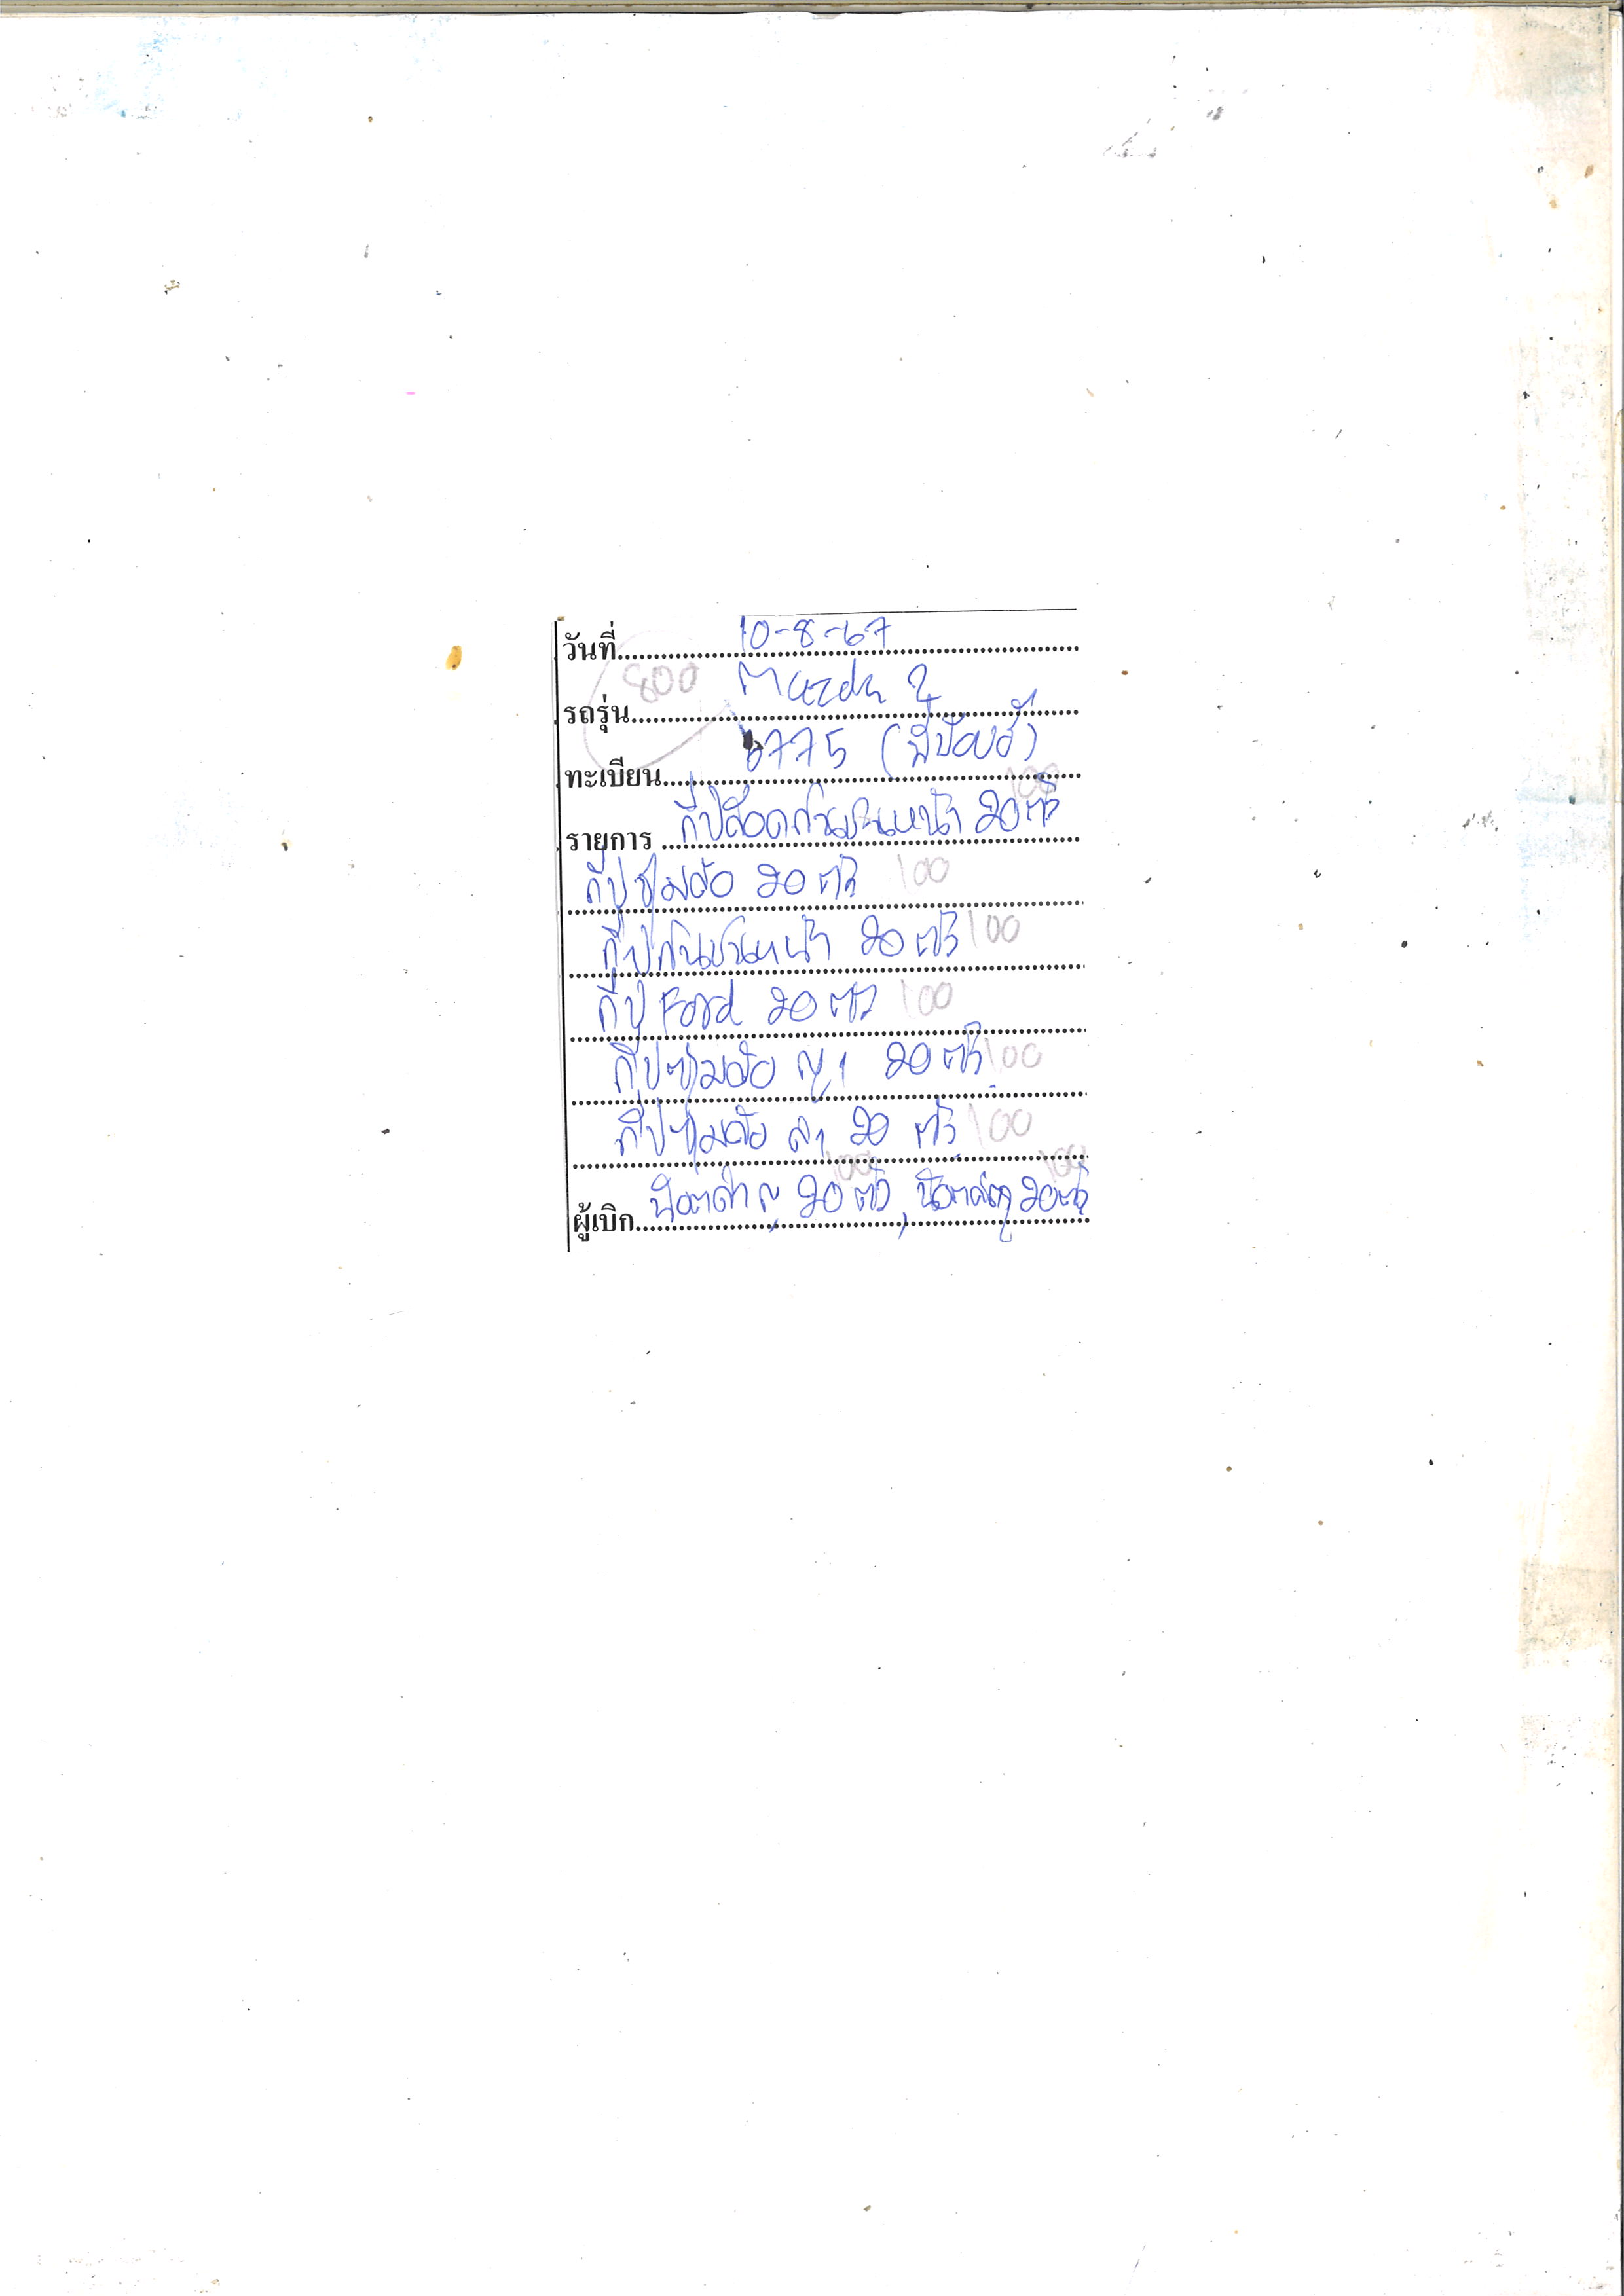 วันที่ 10-8-67
800
รถรุ่น Mazda 2
ทะเบียน 6775 (พี่ป้อบบี้)
100
รายการ กิ๊ปล็อคกันชนหน้า 20 ตัว
กิ๊ปซุ้มล้อ 20 ตัว 100
กิ๊ปกันชนหน้า 20 ตัว 100
กิ๊ป Ford 20 ตัว 100
กิ๊ปซุ้มล้อ ญ 1 20 ตัว 100
กิ๊ปซุ้มล้อ 20 ตัว 100
100 100
ผู้เบิก น๊อตดำ ญ 20 ตัว, น๊อต 20 ตัว